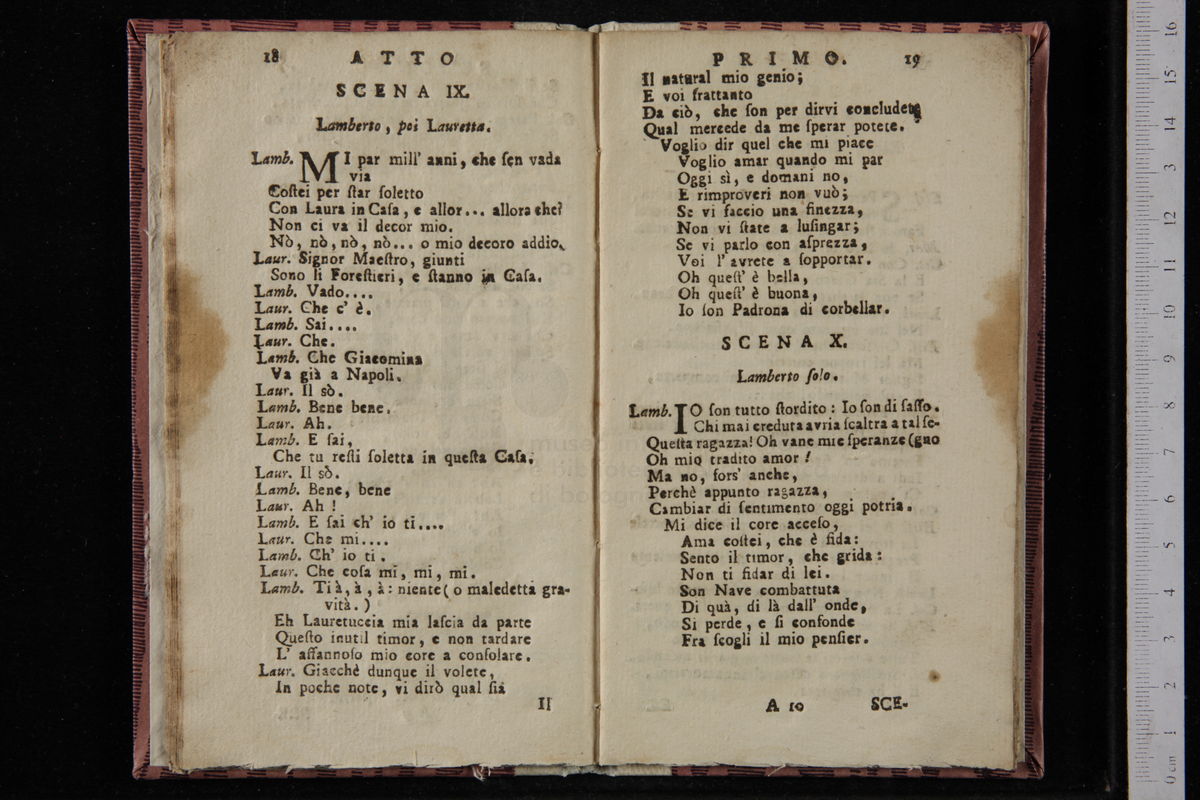 18 ATTO
SCENA IX.
Lamberto, poi Lauretta.
Lamb. MI par mill' anni, che ſen vada
via
Coſtei per ſtar ſoletto
Con Laura in Caſa, e allor... allora che?
Non ci va il decor mio.
Nò, nò, nò, nò... o mio decoro addio.
Laur. Signor Maeſtro, giunti
Sono li Foreſtieri, e ſtanno in Caſa.
Lamb. Vado....
Laur. Che c' è.
Lamb. Sai....
Laur. Che.
Lamb. Che Giacomina
Va già a Napoli.
Laur. Il sò.
Lamb. Bene bene.
Laur. Ah.
Lamb. E ſai,
Che tu reſti ſoletta in queſta Caſa.
Laur. Il sò.
Lamb. Bene, bene
Laur. Ah !
Lamb. E ſai ch' io ti....
Laur. Che mi....
Lamb. Ch' io ti .
Laur. Che coſa mi, mi, mi.
Lamb. Ti à, à, à: niente ( o maledetta gra-
vità. )
Eh Lauretuccia mia laſcia da parte
Queſto inutil timor, e non tardare
L' affannoſo mio core a conſolare.
Laur. Giacchè dunque il volete,
In poche note, vi dirò qual ſia
Il
PRIMO. 19
Il natural mio genio;
E voi frattanto
Da ciò, che ſon per dirvi concludete
Qual mercede da me ſperar potete.
Voglio dir quel che mi piace
Voglio amar quando mi par
Oggi sì, e domani no,
E rimproveri non vuò;
Se vi faccio una finezza,
Non vi ſtate a luſingar;
Se vi parlo con aſprezza,
Voi l' avrete a ſopportar.
Oh queſt' è bella,
Oh queſt' è buona,
Io ſon Padrona di corbellar.
SCENA X.
Lamberto ſolo.
Lamb. IO ſon tutto ſtordito : Io ſon di ſaſſo.
Chi mai creduta avria ſcaltra a tal ſe-
Queſta ragazza! Oh vane mie ſperanze (gno
Oh mio tradito amor !
Ma no, forſ' anche,
Perchè appunto ragazza,
Cambiar di ſentimento oggi potria.
Mi dice il core acceſo,
Ama coſtei, che è fida:
Sento il timor, che grida :
Non ti fidar di lei.
Son Nave combattuta
Di quà, di là dall' onde,
Si perde, e ſi confonde
Fra ſcogli il mio penſier.
A 10 SCE-
0 cm 1 2 3 4 5 6 7 8 9 10 11 12 13 14 15 16